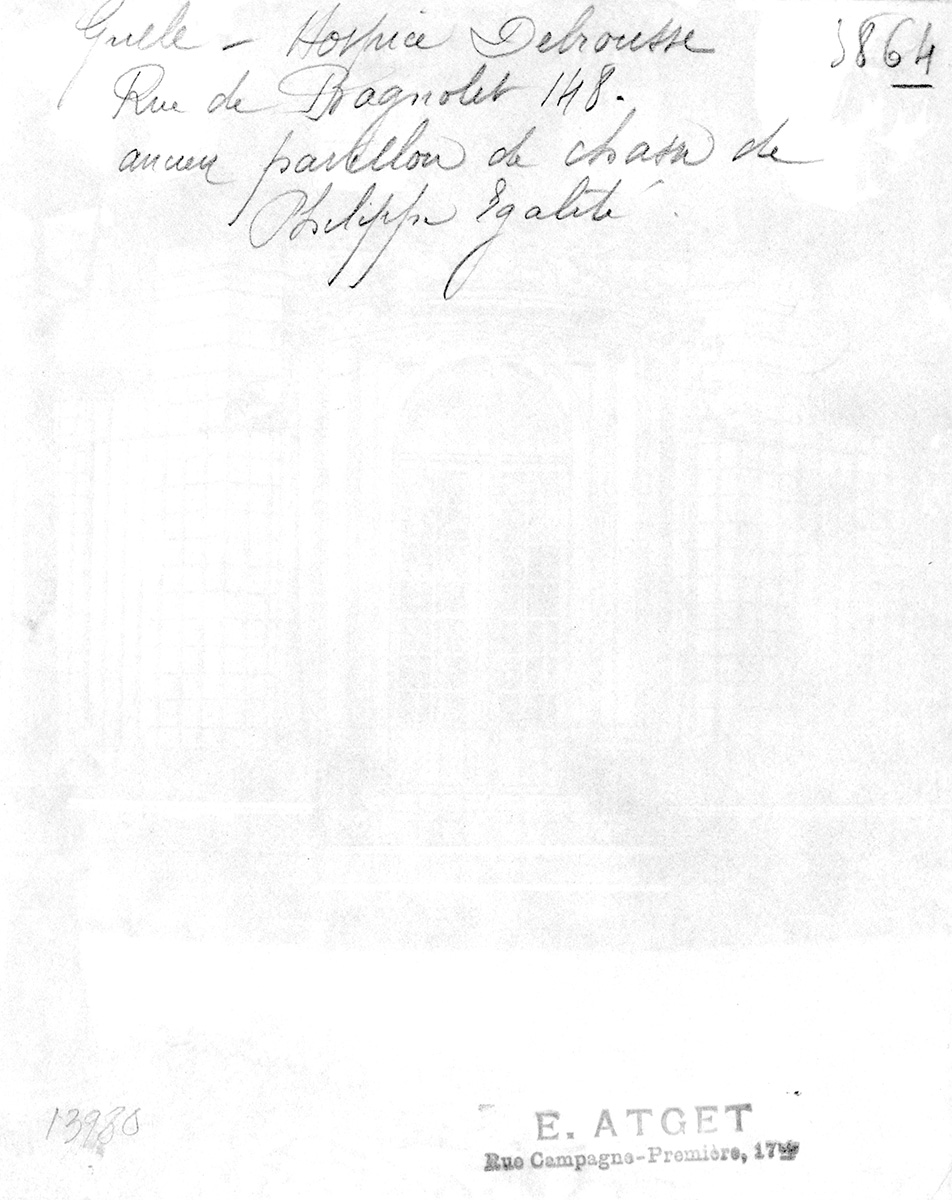 Grille - Hospice Debrousse
5864
Rue de Bagnolet 148.
ancien pavillon de chasse de
Philippe Egalité.
13980
E. ATGET
Rue Campagne-Première, 17bis